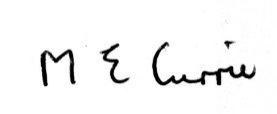 M E Currie